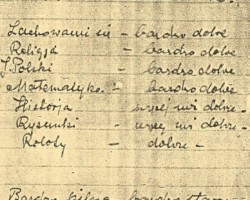 Zachowanie się - bardzo dobre
Religja - bardzo dobre
J. Polski - bardzo dobre
Matematyka - bardzo dobre
Historja - więcej niż dobre
Rysunki - więcej niż dobre
Roboty - dobre -
Bardzo pilna, bardzo